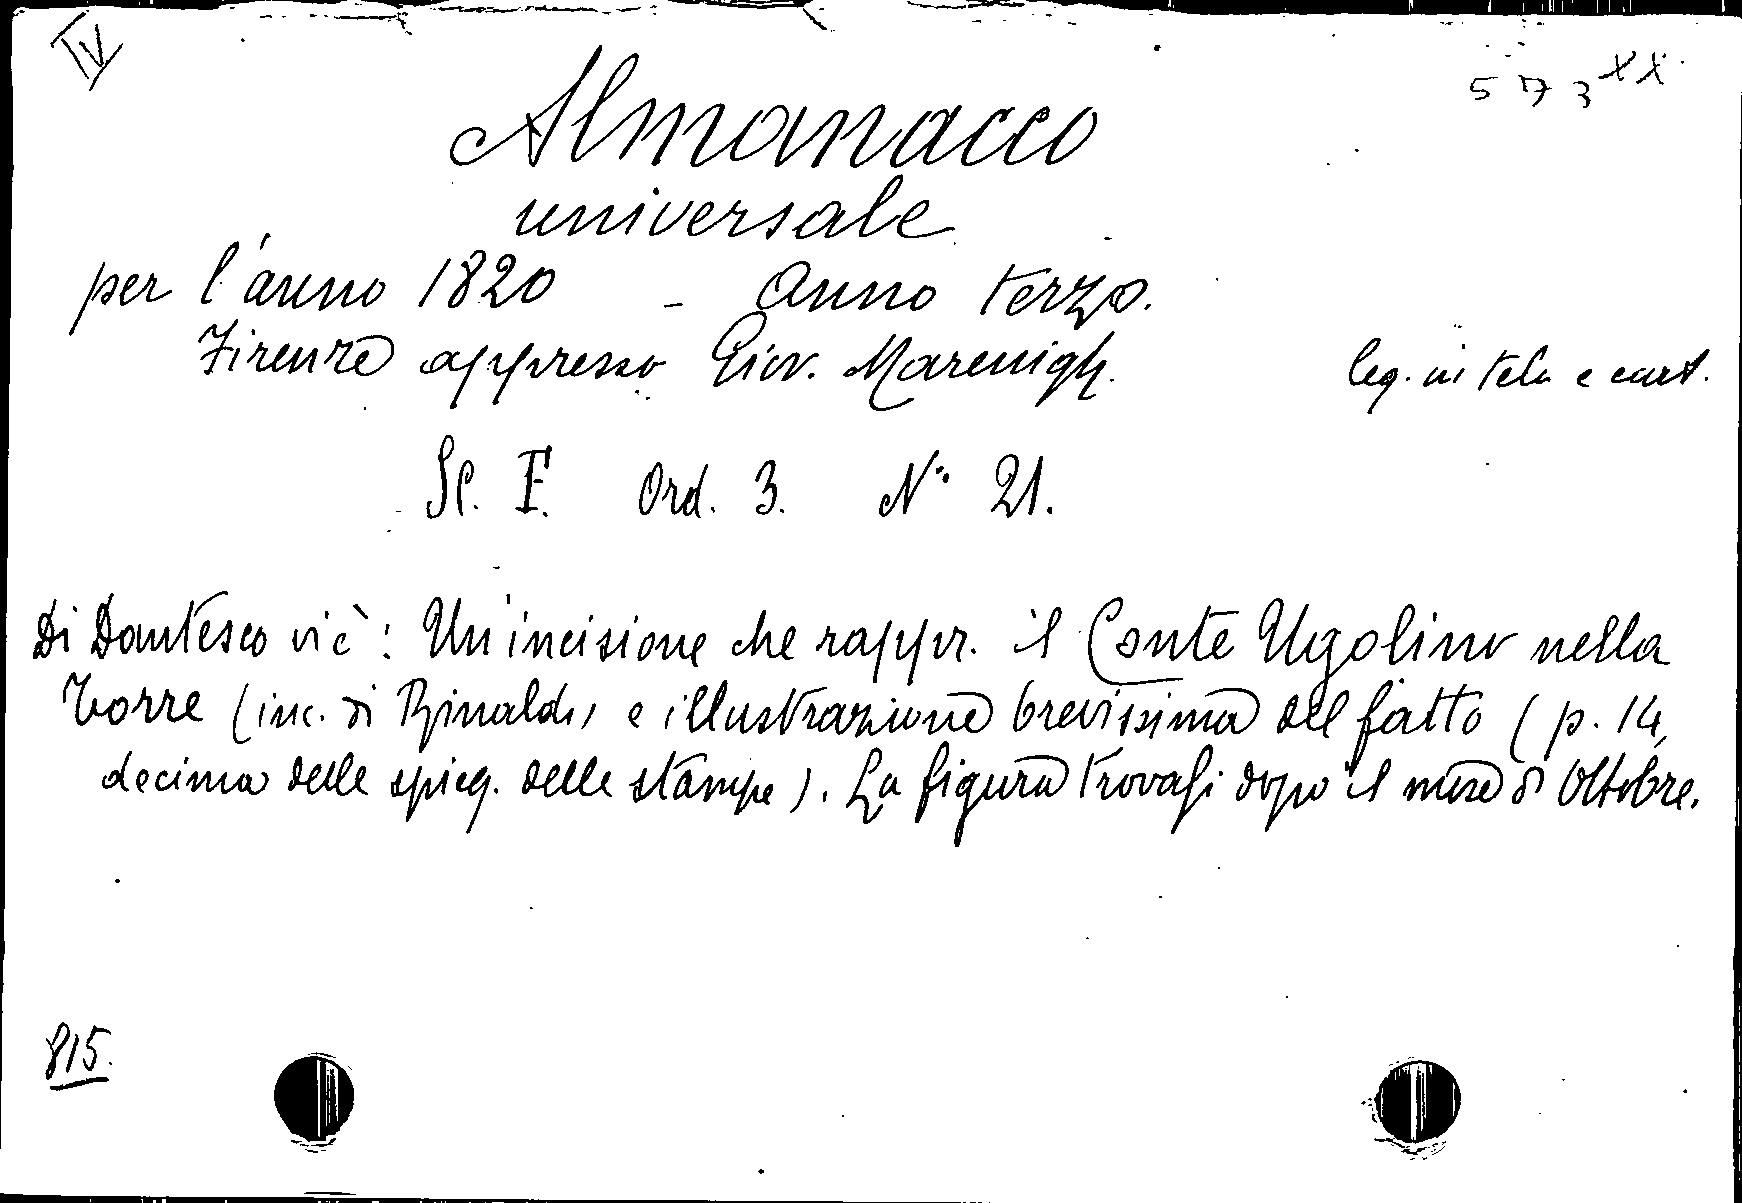 IV
573 XX
Almanacco
universale
per l'anno 1820 - Anno terzo.
Firenze appresso Giov. Marenigh.
leg. in tela e cart.
Sc. F. Ord. 3. N° 21.
Di Dantesco vi è: Un'incisione che rappr. il Conte Ugolino nella
torre (inc. di Rinaldi) e illustrazione brevissima del fatto (p. 14,
decima delle spieg. delle stampe). La figura trovasi dopo il mese di Ottobre.
815.